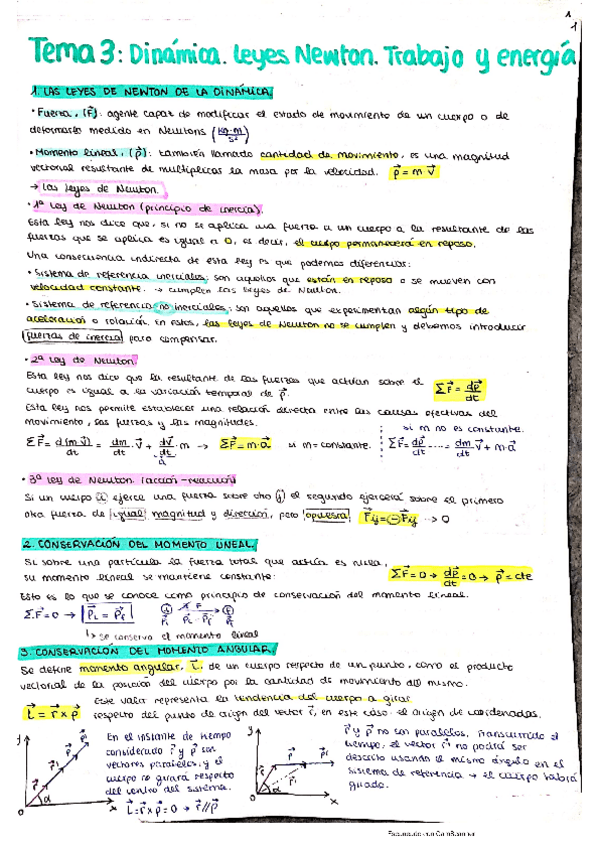 1
1
Tema 3: Dinámica. Leyes Newton. Trabajo y energía
1. LAS LEYES DE NEWTON DE LA DINÁMICA.
• Fuerza, (F⃗): agente capaz de modificar el estado de movimiento de un cuerpo o de
deformarlo medido en Newtons (kg·m/s²)
• Momento lineal, (p⃗): también llamado cantidad de movimiento, es una magnitud
vectorial resultante de multiplicar la masa por la velocidad. p⃗ = m v⃗
→ Las leyes de Newton.
• 1ª Ley de Newton (principio de inercia).
Esta ley nos dice que, si no se aplica una fuerza a un cuerpo o la resultante de las
fuerzas que se aplica es igual a 0, es decir, el cuerpo permanecerá en reposo.
Una consecuencia indirecta de esta ley es que podemos diferenciar:
• Sistema de referencia inerciales: son aquellos que están en reposo o se mueven con
velocidad constante. → cumplen las leyes de Newton.
• Sistema de referencia no inerciales: son aquellos que experimentan algún tipo de
aceleración o rotación. En estos, las leyes de Newton no se cumplen y debemos introducir
fuerzas de inercia para compensar.
• 2ª Ley de Newton
Esta ley nos dice que la resultante de las fuerzas que actúan sobre el
cuerpo es igual a la variación temporal de p⃗. ΣF⃗ = dp⃗/dt
Esta ley nos permite establecer una relación directa entre las causas efectivas del
movimiento, las fuerzas y las magnitudes. si m no es constante.
ΣF⃗ = d(m v⃗)/dt = dm/dt · v⃗ + dv⃗/dt · m → ΣF⃗ = m·a⃗ si m = constante. ΣF⃗ = dp⃗/dt ..... = dm/dt v⃗ + m·a⃗
a⃗
• 3ª Ley de Newton (acción-reacción)
Si un cuerpo (i) ejerce una fuerza sobre otro (j) el segundo ejercerá sobre el primero
otra fuerza de igual magnitud y dirección, pero opuesta F⃗ij = - F⃗ij → 0
2. CONSERVACIÓN DEL MOMENTO LINEAL.
Si sobre una partícula la fuerza total que actúa es nula,
su momento lineal se mantiene constante: ΣF⃗ = 0 → dp⃗/dt = 0 → p⃗ = cte
Esto es lo que se conoce como principio de conservación del momento lineal.
ΣF⃗ = 0 → p⃗i = p⃗f
↳ se conserva el momento lineal
3. CONSERVACIÓN DEL MOMENTO ANGULAR.
Se define momento angular, L⃗, de un cuerpo respecto de un punto, como el producto
vectorial de la posición del cuerpo por la cantidad de movimiento del mismo.
L⃗ = r⃗ x p⃗ Este valor representa la tendencia del cuerpo a girar
respecto del punto de origen del vector r⃗, en este caso el origen de coordenadas.
En el instante de tiempo
considerado r⃗ y p⃗ son
vectores paralelos, y el
cuerpo no girará respecto
del centro del sistema.
L⃗ = r⃗ x p⃗ = 0 → r⃗ // p⃗
y
r⃗
p⃗
α
0
x
y
r⃗
p⃗
α
0
x
r⃗ y p⃗ no son paralelos, transcurrido el
tiempo, el vector r⃗' no podrá ser
descrito usando el mismo ángulo en el
sistema de referencia → el cuerpo habrá
girado.
Escaneado con CamScanner